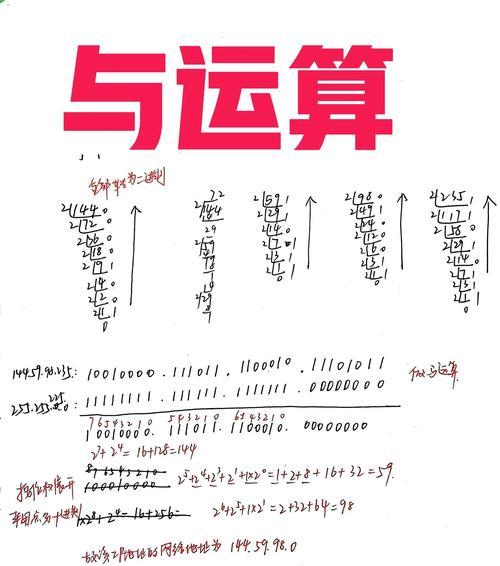 与运算
全部转为二进制
2|144 0
2|72 0
2|36 0
2|18 0
2|9 1
2|4 0
2|2 0
2|1 1
0
72
2|144
29
2|59 1
2|29 1
2|14 0
2|7 1
2|3 1
2|1 1
0
2|98 0
2|49 1
2|24 0
2|12 0
2|6 0
2|3 1
2|1 1
0
2|235 1
2|117 1
2|58 0
2|29 1
2|14 0
2|7 1
2|3 1
2|1 1
0
144.59.98.235: 10010000 . 111011 . 1100010 . 11101011
255.255.255.0: 11111111 . 111111 . 1111111 . 00000000
做与运算
76543210 543210 6543210
10010000. 111011. 1100010. 00000000
2⁷+2⁴=16+128=144
876543210
100010000
按位权展开
2⁵+2⁴+2³+2¹+1x2⁰=1+2+8+16+32=59.
1x2⁸+2⁴=16+256=
2⁶+2⁵+1x2¹=2+32+64=98
故该IP地址的网络地址为 144.59.98.0